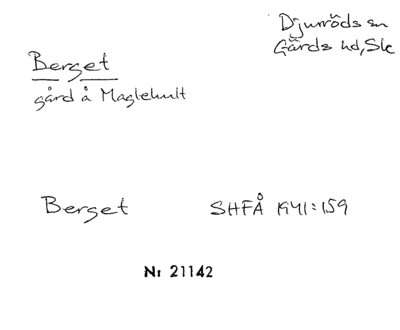 Djurröds sn
Gärds hd, Sk
Berget
gård å Maglehult
Berget SHFÅ 1941:159
Nr 21142